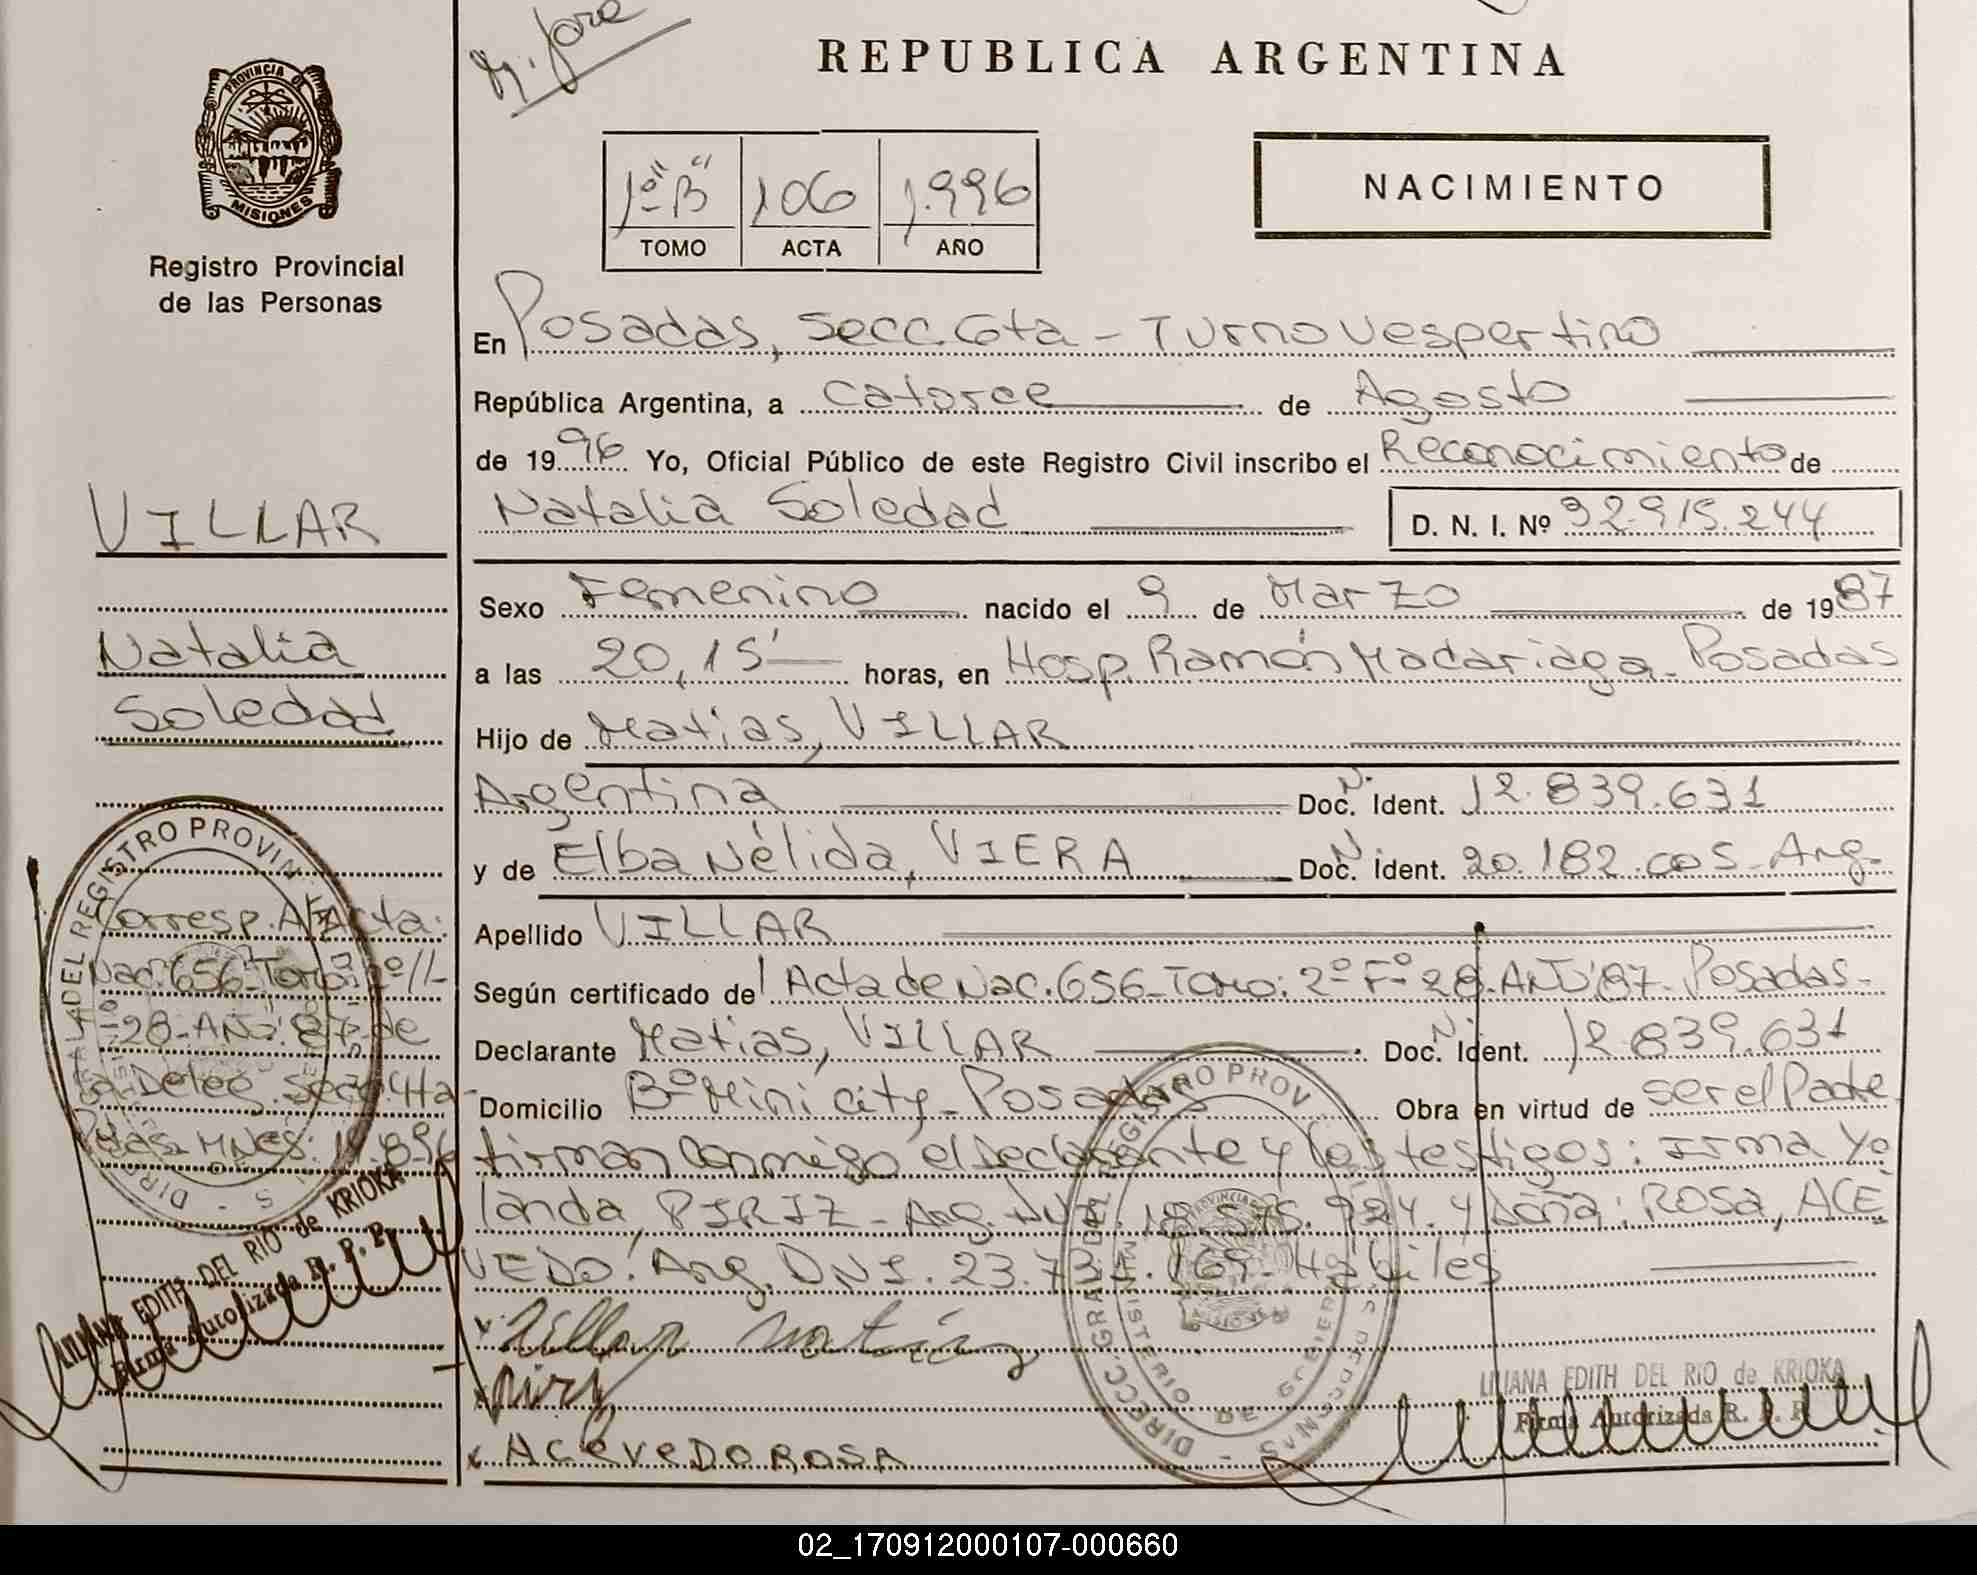 REPUBLICA ARGENTINA
PROVINCIA DE
MISIONES
Registro Provincial
de las Personas
1º "B" 106 1.996
TOMO ACTA AÑO
NACIMIENTO
En Posadas, Secc. 4ta - Turno Vespertino
República Argentina, a catorce de Agosto
de 1996 Yo, Oficial Público de este Registro Civil inscribo el Reconocimiento de
Natalia Soledad D. N. I. Nº 32.915.244
VILLAR
Natalia
Soledad
Sexo Femenino nacido el 9 de Marzo de 1987
a las 20,15' horas, en Hosp. Ramón Madariaga - Posadas
Hijo de Matias, VILLAR
Argentina Doc. N. Ident. 12.839.631
y de Elba Nélida, VIERA Doc. N. Ident. 20.182.005 - Arg.-
Apellido VILLAR
Según certificado de Acta de Nac. 656 - Tomo: 2º Fº 28 - AÑO '87 - Posadas -
Declarante Matias, VILLAR Doc. N. Ident. 12.839.631
Domicilio Bº Mini city - Posadas Obra en virtud de ser el Padre
firman conmigo el Declarante y los testigos: Irma Yo
landa, PIRIZ - Arg. DNI. 18.575.924. y Doña: ROSA, ACE
VEDO. Arg. DNI. 23.73 .169 - Hábiles
Villar Matias
Piriz
ACeVeDO ROSA
Corresp. Al Acta:
Nac. 656 - Tomo: 2º
28 - AÑO: 87 - de
la Deleg. Secc. 4ta -
Pdas. MNES: 14.8.96
LILIANA EDITH DEL RIO de KRIOKA
Firma Autorizada R. P. P.
DIRECC. GRAL. DEL REGISTRO PROV
MINISTERIO DE GOBIERNO
LILIANA EDITH DEL RIO de KRIOKA
Firma Autorizada R. P. P.
02_170912000107-000660